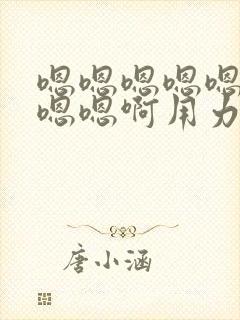 嗯嗯嗯嗯嗯
嗯嗯啊用力
唐小涵